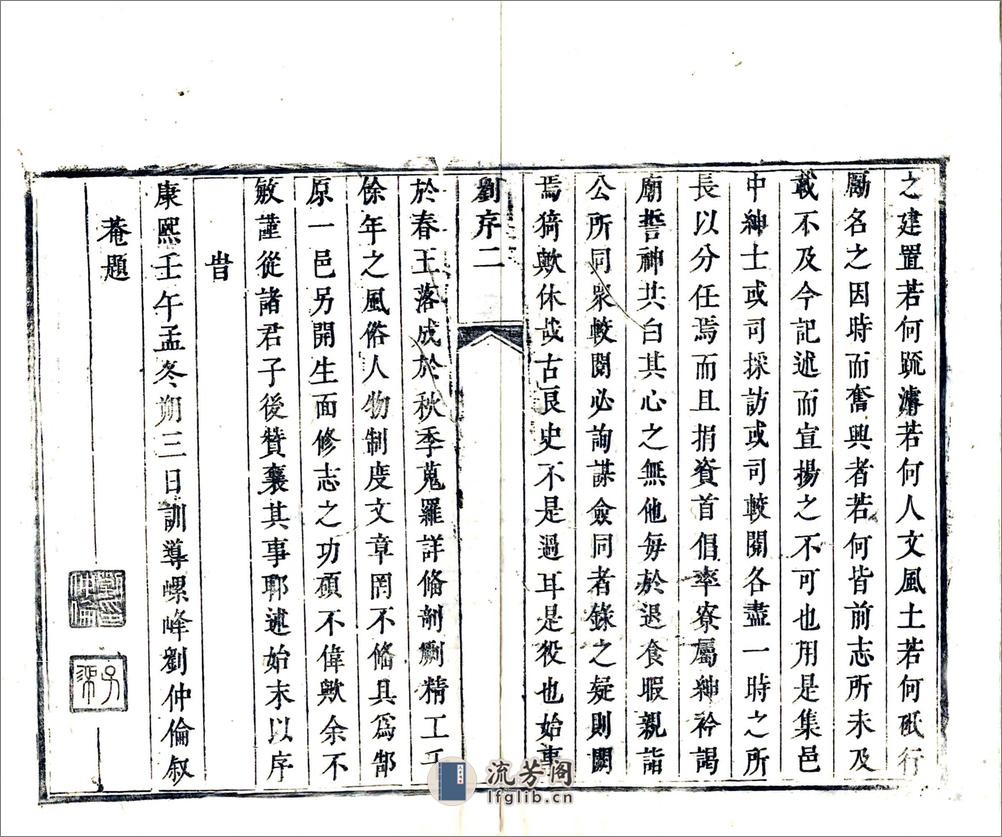 之建置若何疏濬若何人文風土若何砥行
勵名之因時而奮興者若何皆前志所未及
載不及今記述而宣揚之不可也用是集邑
中紳士或司採訪或司較閱各盡一時之所
長以分任焉而且捐資首倡率寮屬紳衿謁
廟誓神共白其心之無他每於退食暇親詣
公所同眾較閱必詢謀僉同者錄之疑則闕
焉猗歟休哉古良史不是過耳是役也始事
劉序二
於春王落成於秋季蒐羅詳俻剞劂精工
餘年之風俗人物制度文章罔不俻具為郜
原一邑另開生面修志之功碩不偉歟余不
敏謹從諸君子後贊襄其事耶述始末以序
旹
康熙壬午孟冬朔三日訓導螺峰劉仲倫叙
菴題
流芳閣
lfglib.cn